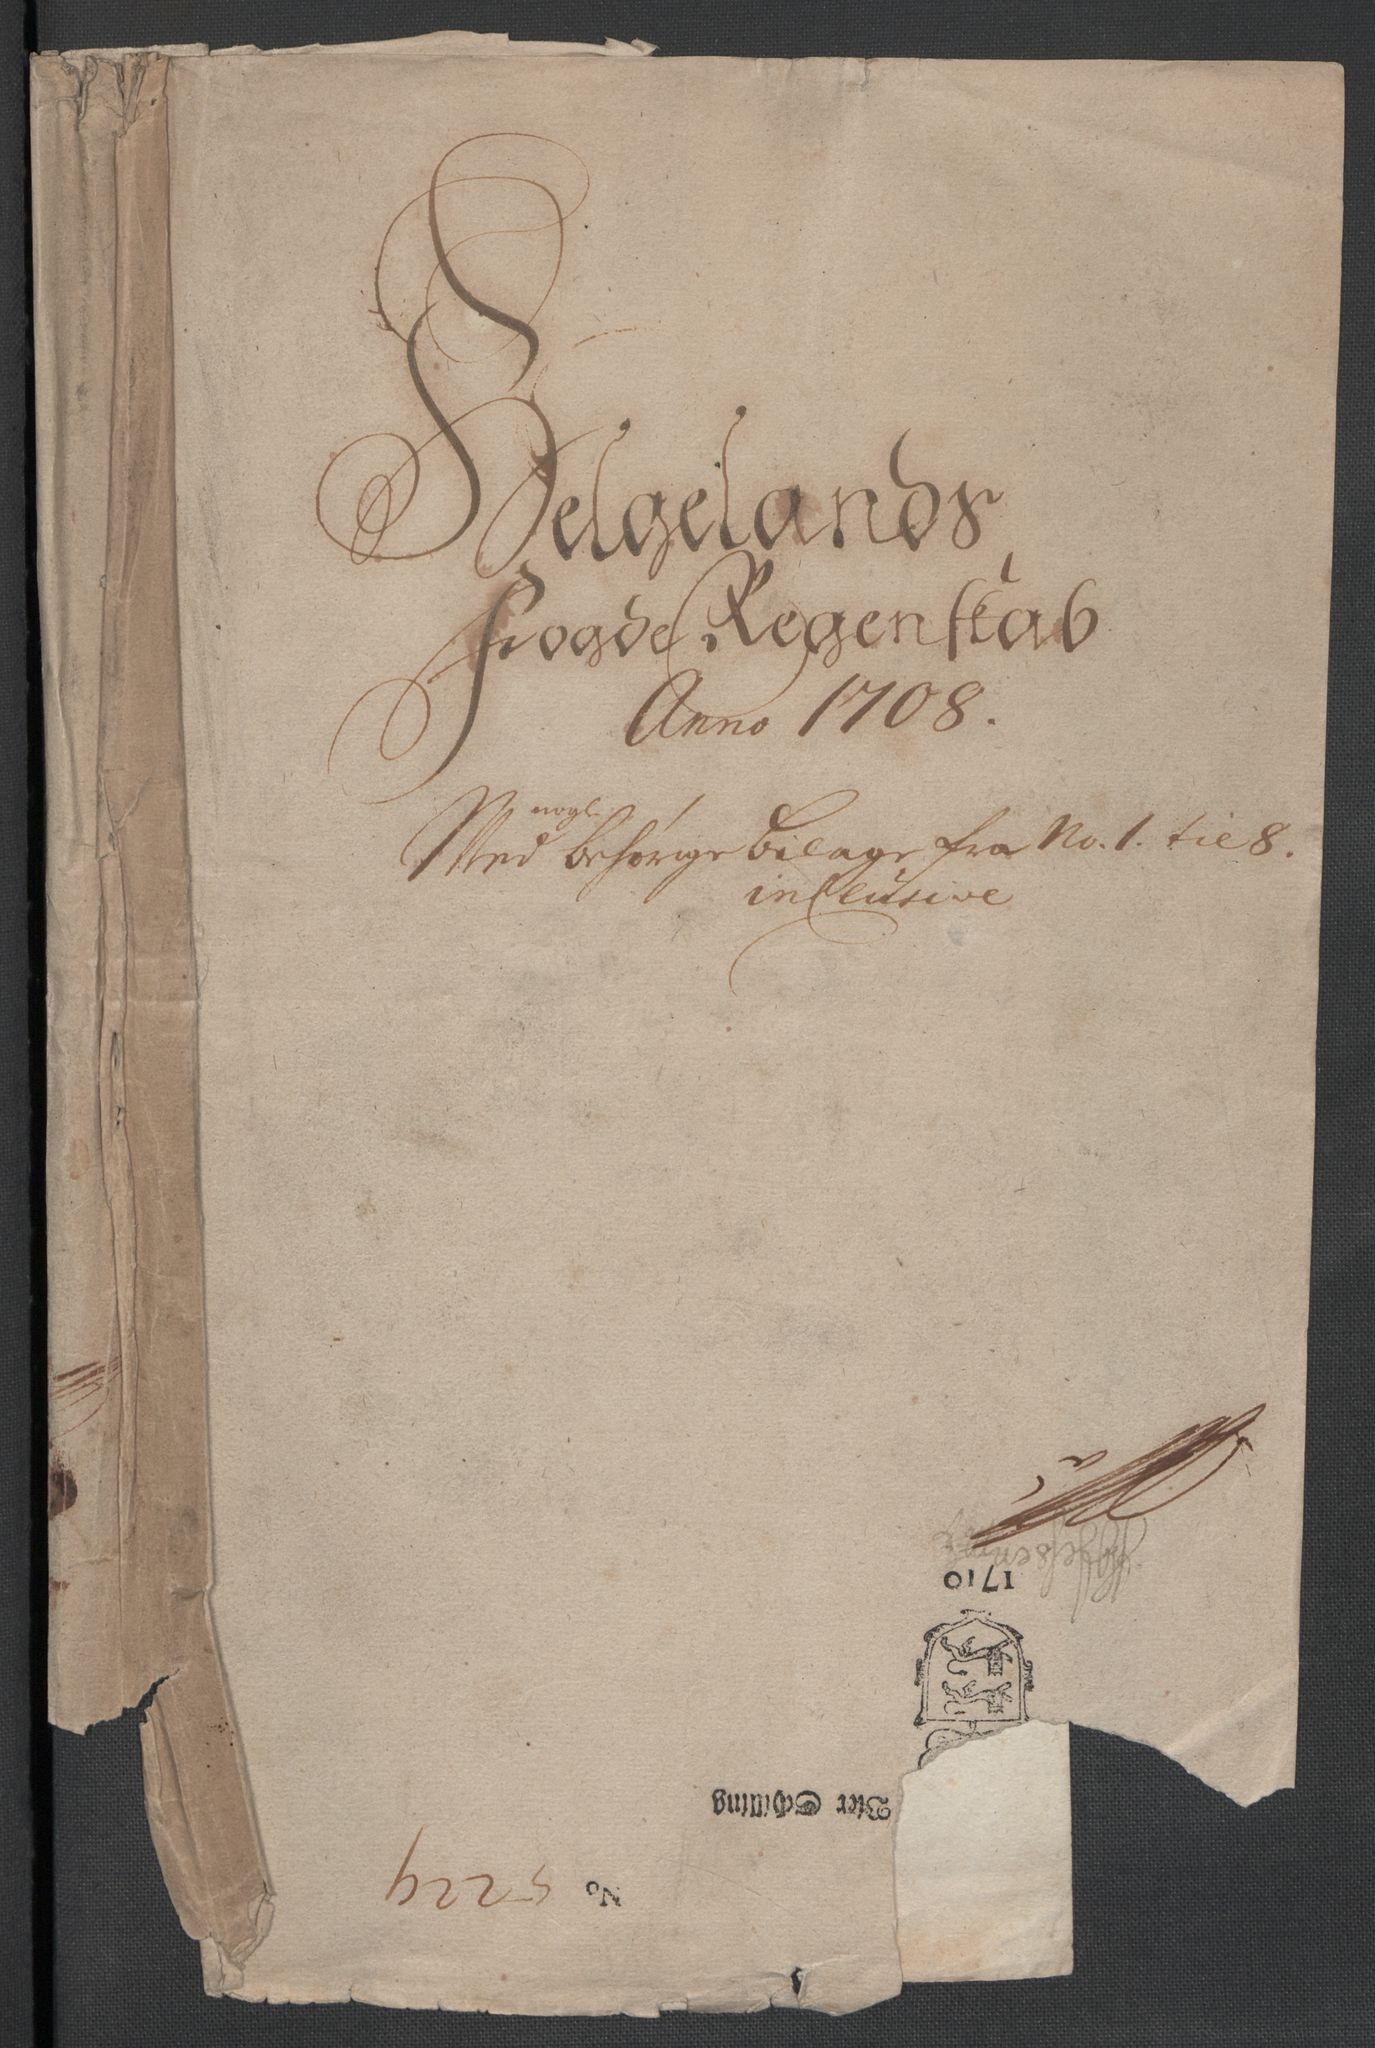 Helgelands
Fogde Regenskab
Anno 1708.
nogle
Med behørige bilage fra No. 1. til 8.
inclusive
1710
2ter Schilling
No 5224